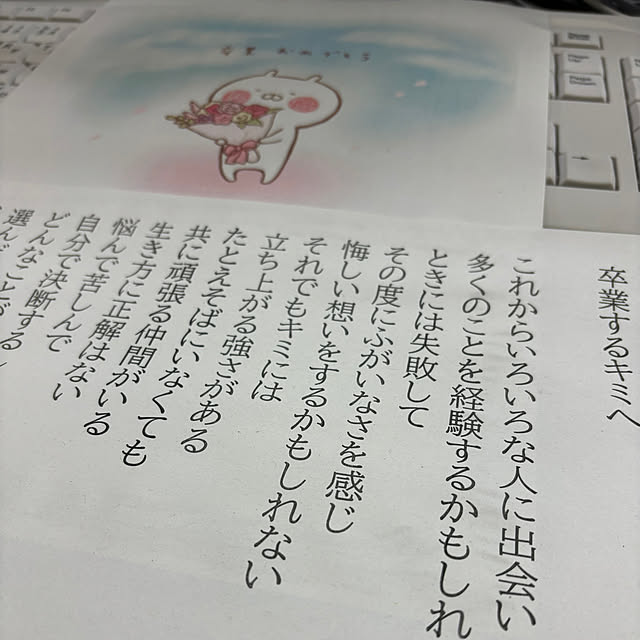 卒業 おめでとう
卒業するキミへ
これからいろいろな人に出会い
多くのことを経験するかもしれ
ときには失敗して
その度にふがいなさを感じ
悔しい想いをするかもしれない
それでもキミには
立ち上がる強さがある
たとえそばにいなくても
共に頑張る仲間がいる
生き方に正解はない
悩んで苦しんで
自分で決断する
どんなことが
選んだ